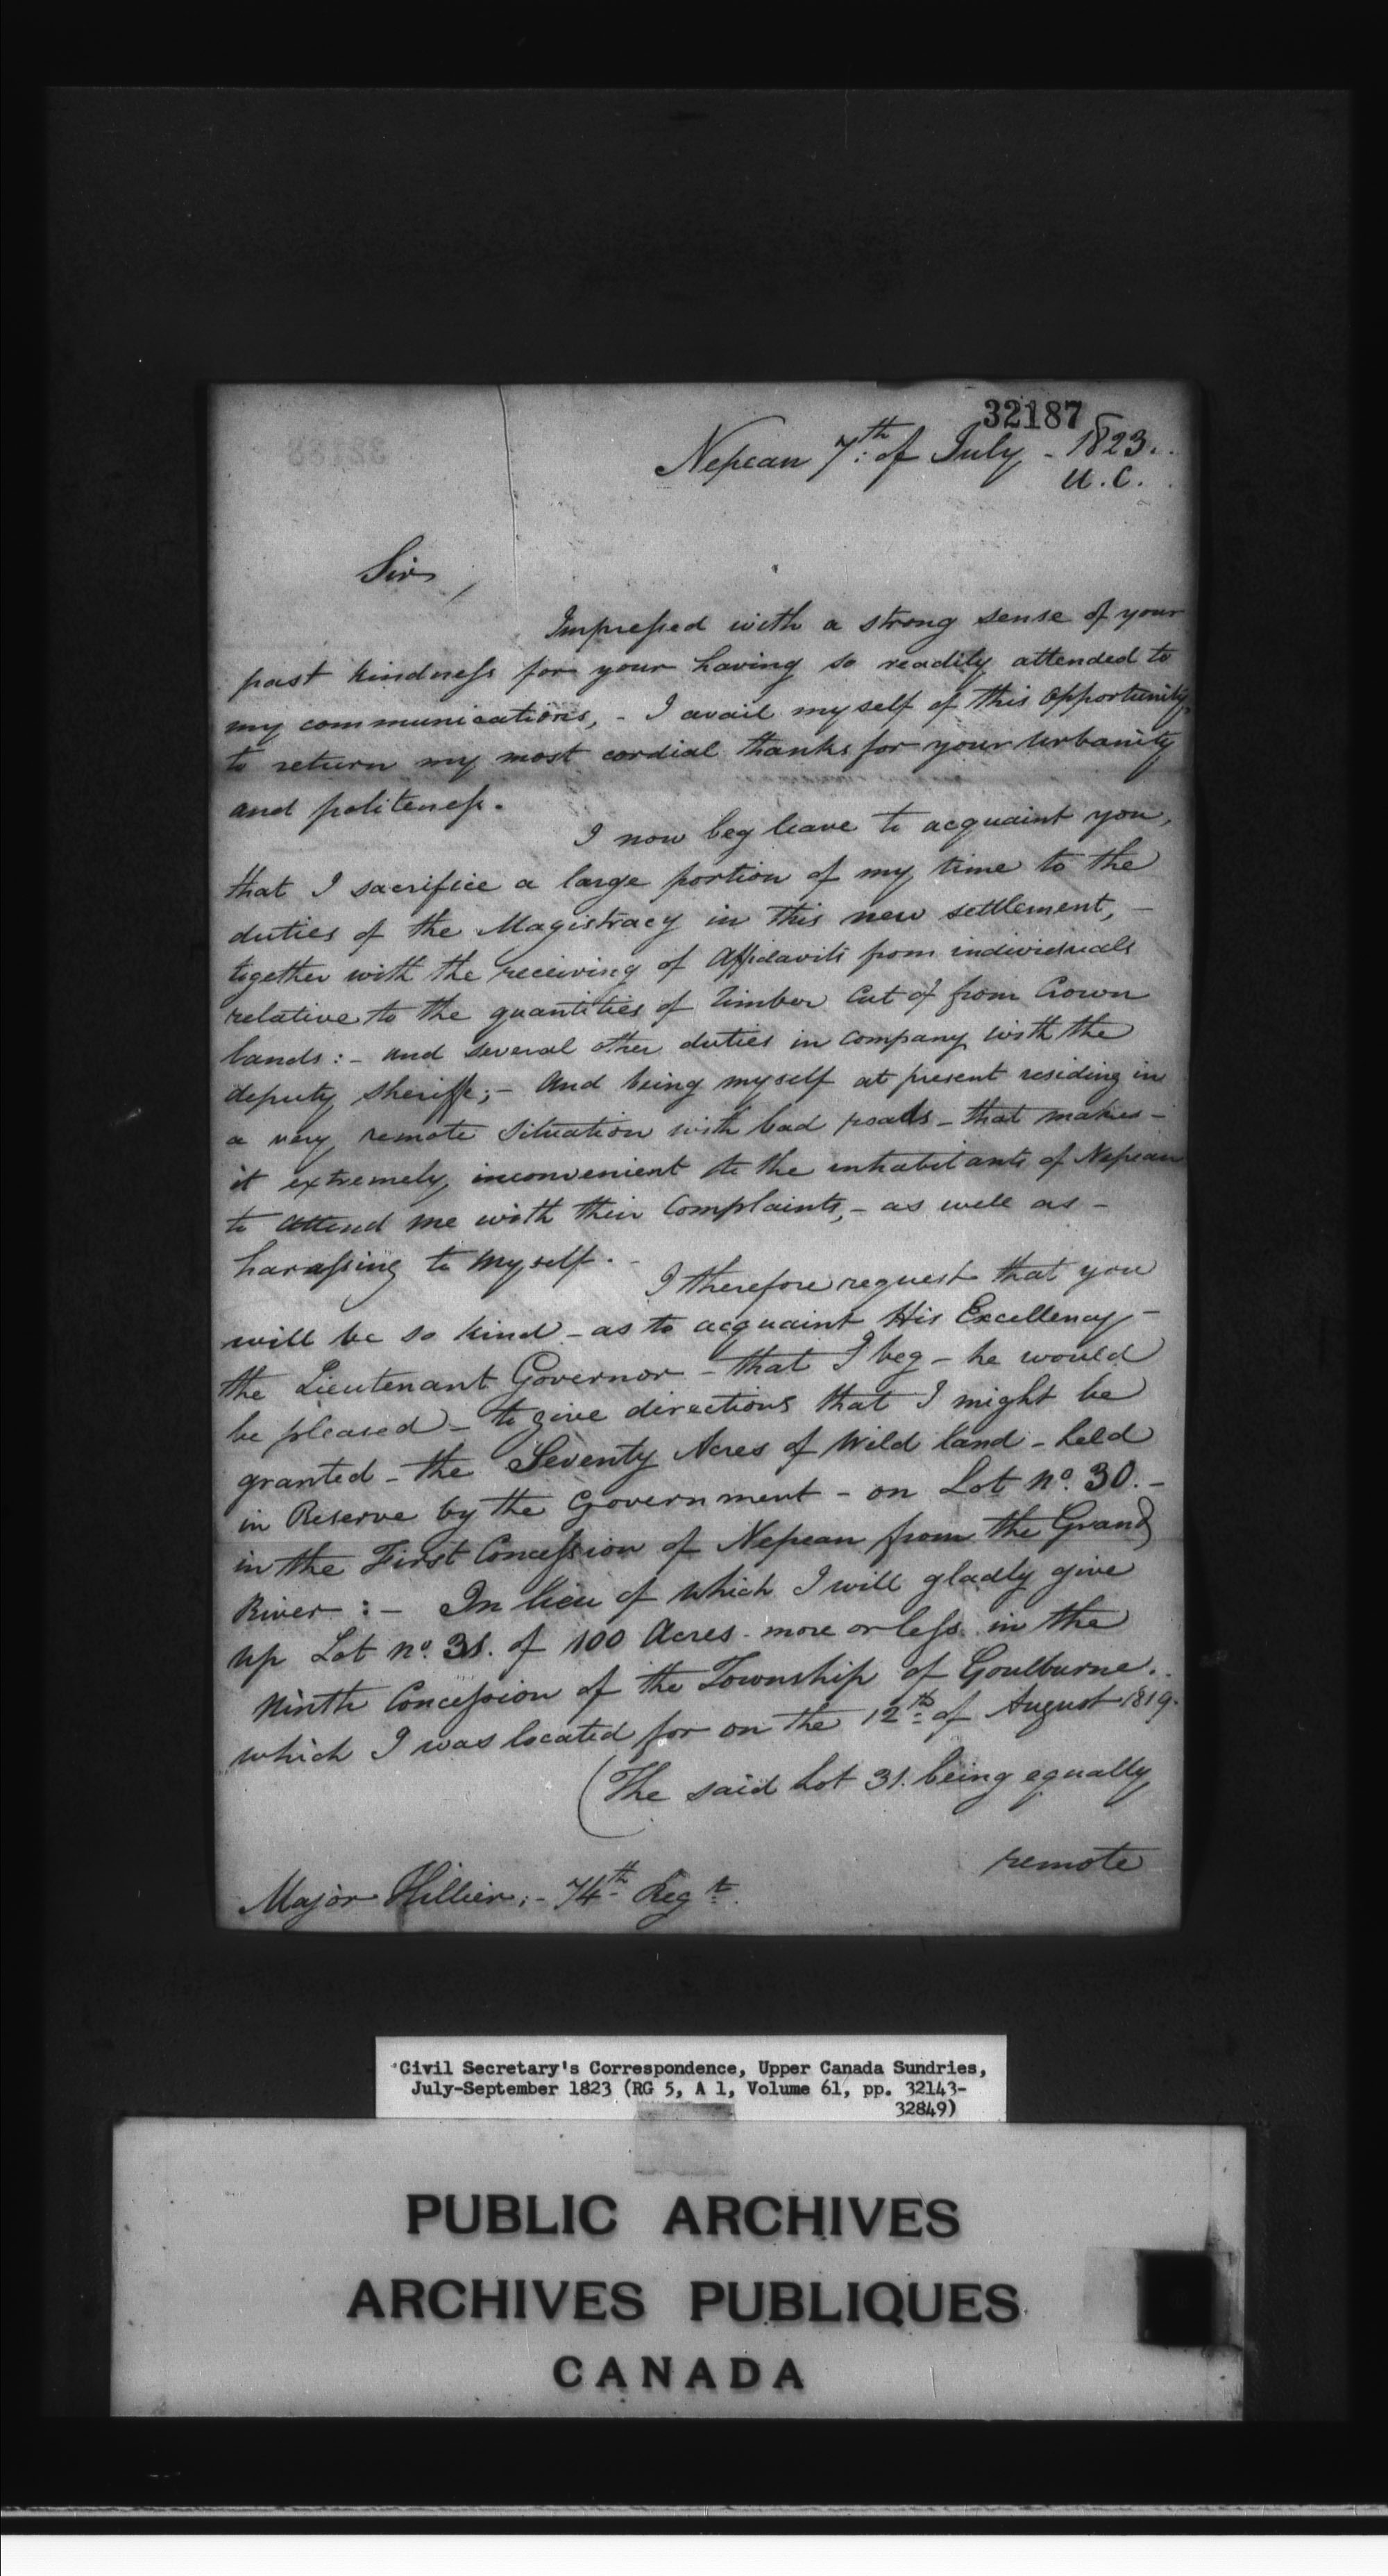 32187
Nepean 7th: of July - 1823.
U.C.
Sir,
Impressed with a strong sense of your
past kindness for your having so readily attended to
my communications, - I avail myself of this opportunity,
to return my most cordial thanks for your Urbanity
and politeness.
I now beg leave to acquaint you,
that I sacrifice a large portion of my time to the
duties of the Magistracy in this new settlement, -
together with the receiving of Affidavits from individuals
relative to the quantities of Timber Cut of from Crown
lands: - and several other duties in company with the
deputy Sheriff; - And being myself at present residing in
a very remote Situation with bad roads - that makes -
it extremely inconvenient to the inhabitants of Nepean
to attend me with their Complaints, - as well as -
harassing to Myself. -
I therefore request that you
will be so kind - as to acquaint His Excellency -
the Lieutenant Governor - that I beg - he would
be pleased - to give directions that I might be
granted - the Seventy Acres of Wild land - held
in Reserve by the Government - on Lot No. 30. -
in the First Concession of Nepean from the Grand
River: - In lieu of which I will gladly give
up Lot No. 31. of 100 Acres more or less in the
Ninth Concession of the Township of Goulburne.
which I was located for on the 12th of August 1819.
(The said Lot 31. being equally
remote
Major Hillier; - 74th Regt.
Civil Secretary's Correspondence, Upper Canada Sundries,
July-September 1823 (RG 5, A 1, Volume 61, pp. 32143-
32849)
PUBLIC ARCHIVES
ARCHIVES PUBLIQUES
CANADA